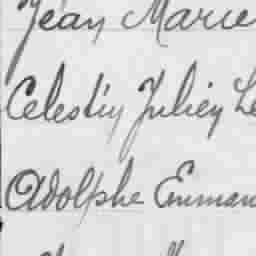 Jean Marie
Celestin Julien Le
Adolphe Emman